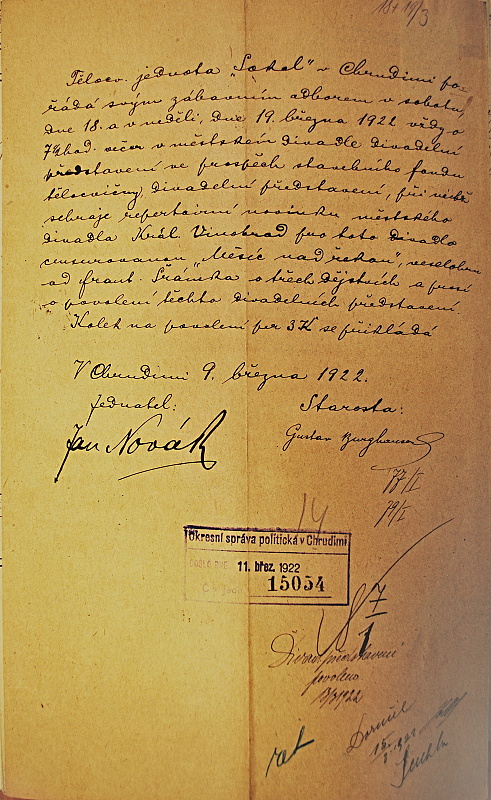 18+19/3
Tělocv. jednota „Sokol“ v Chrudimi po-
řádá svým zábavním odborem v sobotu,
dne 18. a v neděli, dne 19. března 1922 vždy o
7½ hod. večer v městském divadle divadelní
představení ve prospěch stavebního fondu
tělocvičny, divadelní představení, při němž
sehraje repertoirní novinku městského
divadla Král. Vinohrad pro toto divadlo
censurovanou, „Měsíc nad řekou“, veselohru
od Frant. Šrámka o třech dějstvích a prosí
o povolení těchto divadelních představení.
Kolek na povolení per 3K se přikládá
V Chrudimi 9. března 1922.
Jednatel: Starosta:
Jan Novák Gustav Burghauser
77/I
79/I
14
Okresní správa politická v Chrudimi
DOŠLO DNE 11. břez. 1922
15054
7
1
Divad. představení
povoleno
1922